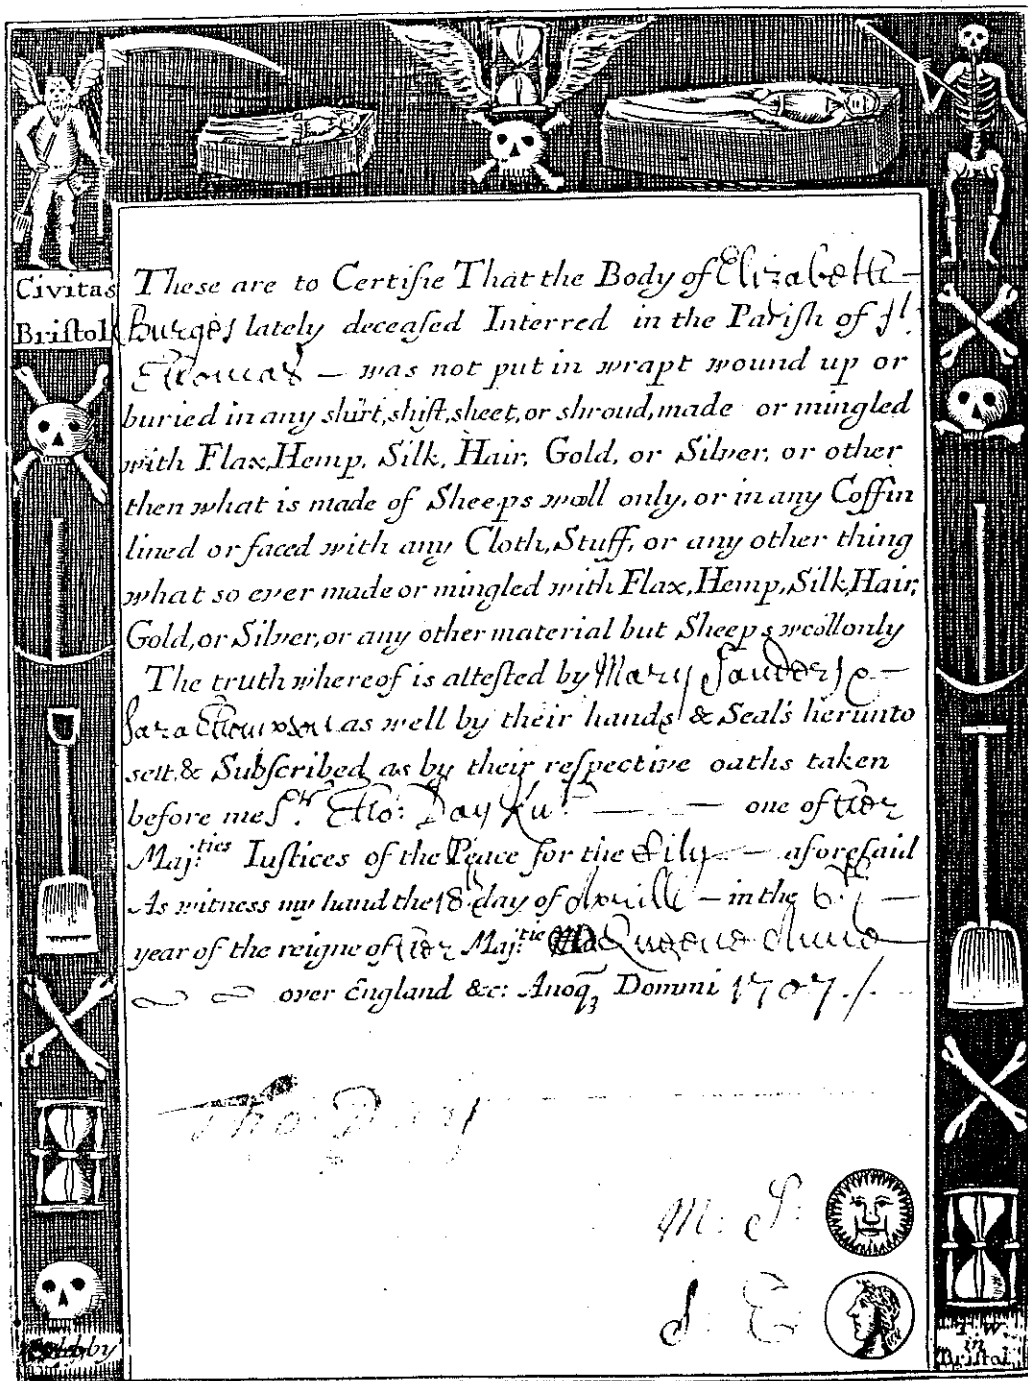 Civitas
Bristol
These are to Certifie That the Body of Elizabeth
Burges lately deceased Interred in the Parish of St.
Thomas — was not put in wrapt wound up or
buried in any shirt, shift, sheet, or shroud, made or mingled
with Flax, Hemp, Silk, Hair, Gold, or Silver, or other
then what is made of Sheeps wooll only, or in any Coffin
lined or faced with any Cloth, Stuff, or any other thing
what so ever made or mingled with Flax, Hemp, Silk, Hair,
Gold, or Silver, or any other material but Sheeps wooll only
The truth whereof is attested by Mary Sanders &
Sara Thompson as well by their hands & Seals herunto
sett, & Subscribed as by their respective oaths taken
before me Sr. Tho: Day Knt — — one of Her
Maj:ties Iustices of the Peace for the Citty — aforesaid
As witness my hand the 18th day of Aprill — in the 6th —
year of the reigne of Her Maj:tie Queene Anne
over England &c: Anoq3 Domini 1707./.
Tho Day
M: S:
S: E
by
T W
in
Bristol